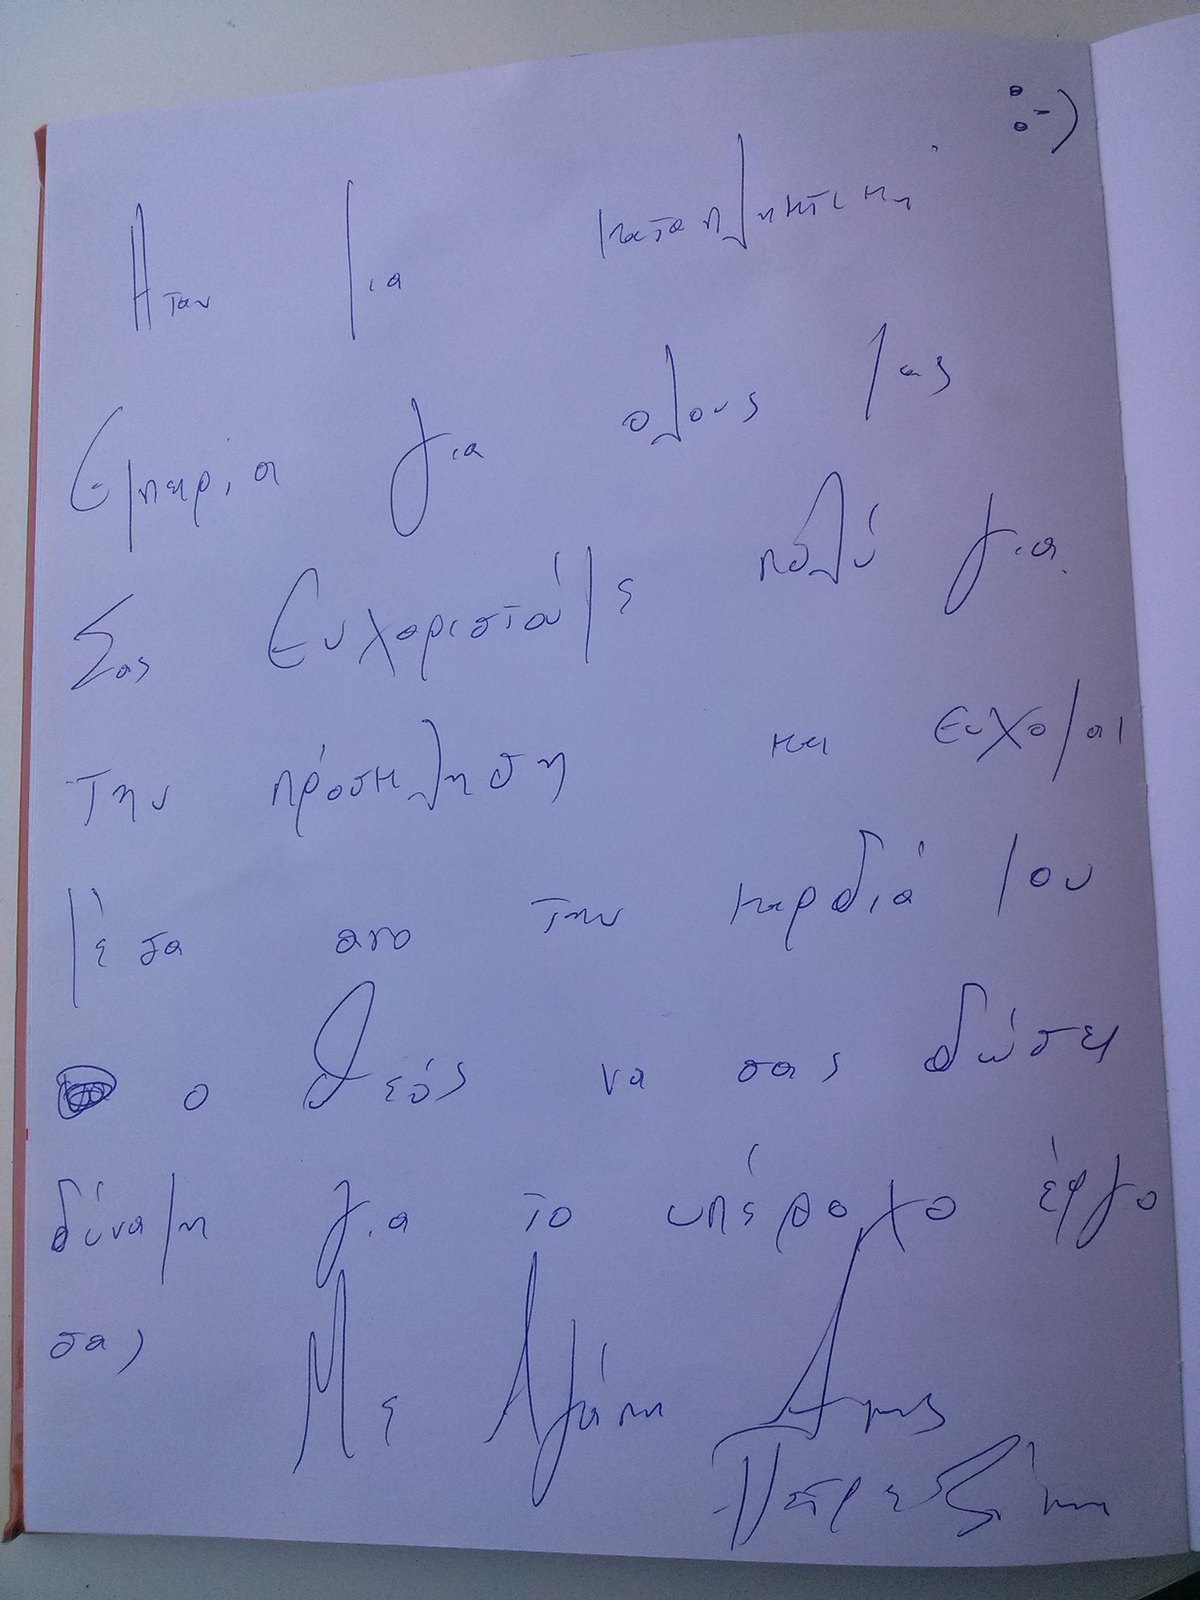 :-)
Ηταν μια καταπληκτικη
Εμπειρία για ολους μας
Σας Ευχαριστούμε πολύ για
την πρόσκληση και ευχομαι
μέσα απο την καρδιά μου
ο Θεός να σας δώσει
δύναμη για το υπέροχο έργο
σας
Με Αγάπη